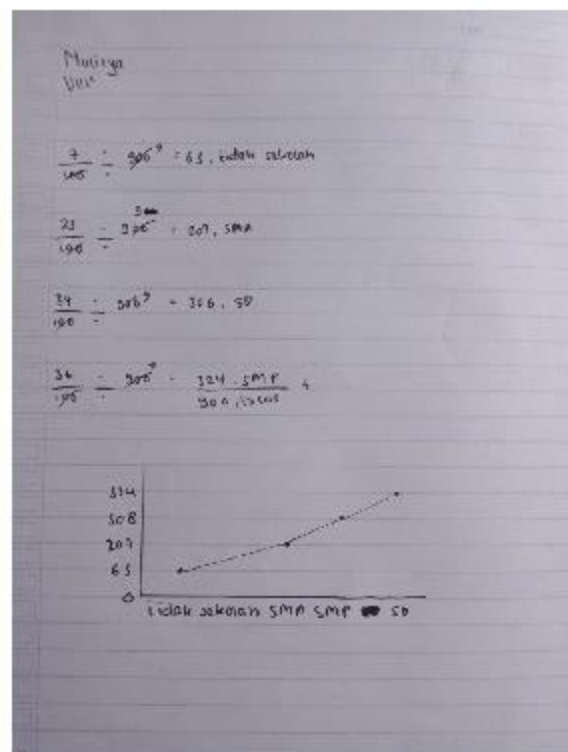 7/100 × 900 9 = 63, tidak sekolah
23/100 = 900 = 207, SMA
34/100 = 900 9 = 306, SD
36/100 = 900 9 = 324, SMP
900
324
308
207
63
0
tidak sekolah SMA SMP SD